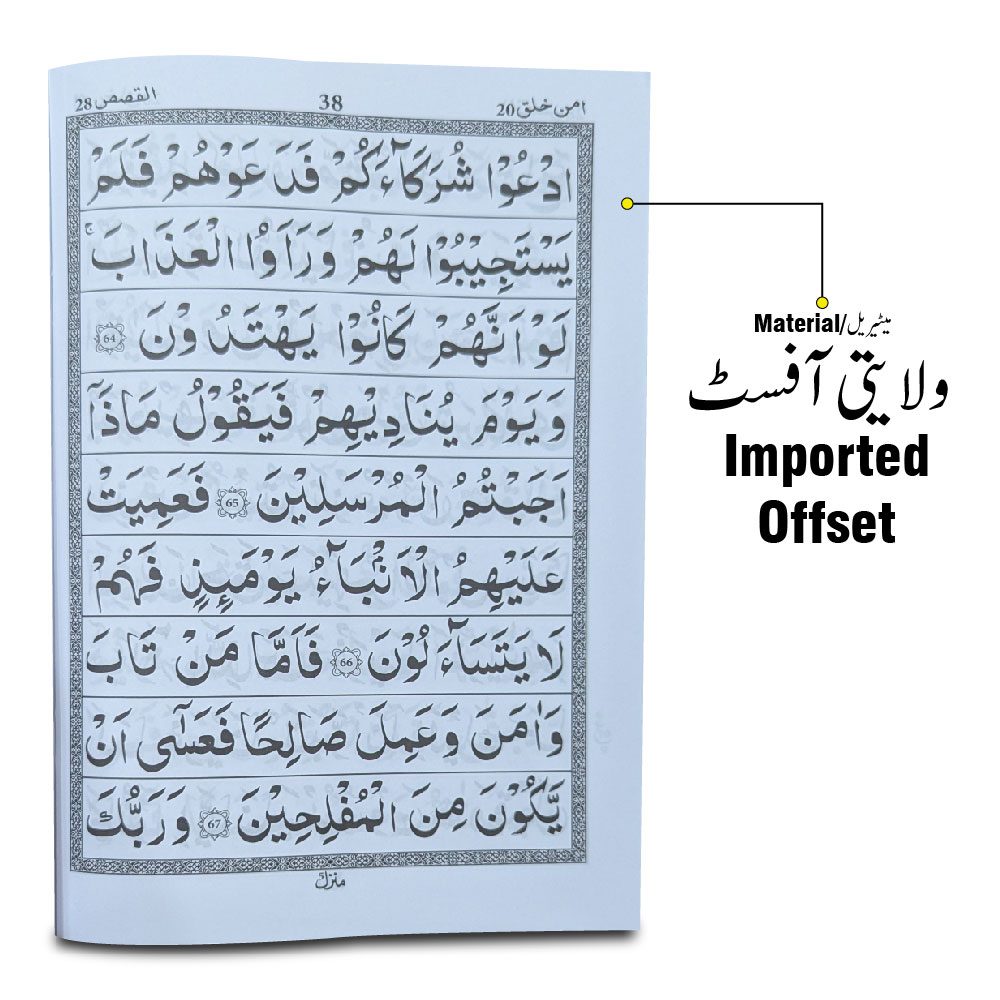 القصص 28
38
امن خلق 20
ادْعُوْا شُرَكَآءَكُمْ فَدَعَوْهُمْ فَلَمْ
يَسْتَجِيْبُوْا لَهُمْ وَرَاَوُا الْعَذَابَ ۚ
لَوْ اَنَّهُمْ كَانُوْا يَهْتَدُوْنَ 64
وَيَوْمَ يُنَادِيْهِمْ فَيَقُوْلُ مَاذَآ
اَجَبْتُمُ الْمُرْسَلِيْنَ 65 فَعَمِيَتْ
عَلَيْهِمُ الْاَنْۢبَآءُ يَوْمَىِٕذٍ فَهُمْ
لَا يَتَسَآءَلُوْنَ 66 فَاَمَّا مَنْ تَابَ
وَاٰمَنَ وَعَمِلَ صَالِحًا فَعَسٰٓى اَنْ
يَّكُوْنَ مِنَ الْمُفْلِحِيْنَ 67 وَرَبُّكَ
Material/میٹیریل
ولایتی آفسٹ
Imported
Offset